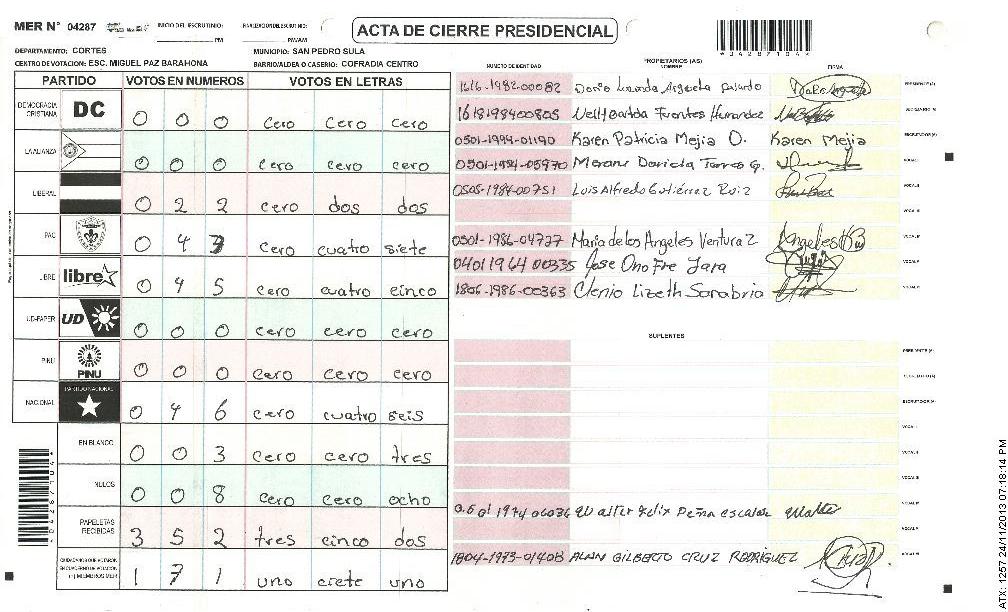 MER N° 04287 INICIO DEL ESCRUTINIO: PM PM/AM
ACTA DE CIERRE PRESIDENCIAL
*04287104*
DEPARTAMENTO: CORTES MUNICIPIO: SAN PEDRO SULA
CENTRO DE VOTACION: ESC. MIGUEL PAZ BARAHONA BARRIO/ALDEA O CASERIO: COFRADIA CENTRO
PARTIDO VOTOS EN NUMEROS VOTOS EN LETRAS
DEMOCRACIA CRISTIANA DC 0 0 0 cero cero cero
LA ALIANZA 0 0 0 cero cero cero
LIBERAL 0 2 2 cero dos dos
PAC 0 4 7 cero cuatro siete
LIBRE libre 0 4 5 cero cuatro cinco
UD-FAPER UD 0 0 0 cero cero cero
PINU PINU 0 0 0 cero cero cero
NACIONAL PARTIDO NACIONAL 0 4 6 cero cuatro seis
EN BLANCO 0 0 3 cero cero tres
NULOS 0 0 8 cero cero ocho
PAPELETAS RECIBIDAS 3 5 2 tres cinco dos
CIUDADANOS QUE VOTARON EN CUADERNO DE VOTACION (+) MIEMBROS MER 1 7 1 uno ciete uno
*04287104*
NUMERO DE IDENTIDAD PROPIETARIOS (AS) NOMBRE FIRMA
1616-1982-00082 Argueta PRESIDENTE (A)
1618198400805 Fuentes Hernandez SECRETARIO (A)
0501-1994-01190 Karen Patricia Mejia O. Karen Mejia ESCRUTADOR (A)
0501-1984-05970 VOCAL I
0505-1984-00751 Luis Alfredo Gutiérrez Ruiz VOCAL II
VOCAL III
0501-1986-04727 Maria de los Angeles Ventura Z VOCAL IV
0401196400335 Jose Onofre Jara VOCAL V
1806-1986-00363 Clenio Lizeth Sanabria VOCAL VI
SUPLENTES
PRESIDENTE (A)
SECRETARIO (A)
ESCRUTADOR (A)
VOCAL I
VOCAL II
VOCAL III
0501 1974 06036 Walter Felix Peña escalar Walter VOCAL IV
VOCAL V
1804-1973-01408 ALAN GILBERTO CRUZ RODRIGUEZ VOCAL VI
ATX: 1257 24/11/2013 07:18:14 PM